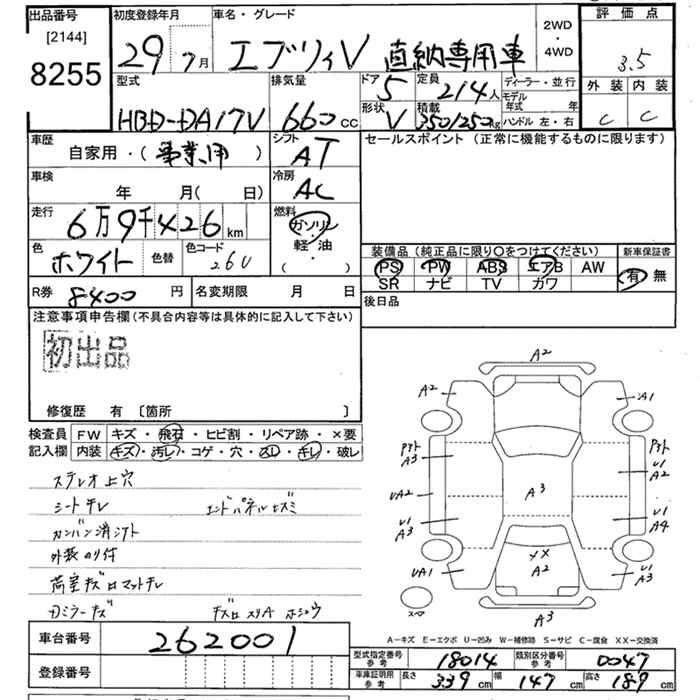 出品番号
[2144]
8255
初度登録年月
29年7月
車名・グレード
エブリィV 直納専用車
2WD
・
4WD
評価点
3.5
外装 内装
C C
型式
HBD-DA17V
排気量
660cc
ドア 5
形状 V
定員 2/4人
積載 350/250kg
ディーラー・並行
モデル年式 年
ハンドル 左・右
車歴
自家用・(事業用)
シフト
AT
セールスポイント (正常に機能するものに限ります)
車検
年 月(日)
冷房
AC
走行
6万9千426km
燃料
ガソリン
・
軽油
( )
色
ホワイト
色替
色コード
26U
装備品 (純正品に限り○をつけてください)
新車保証書
PS PW ABS エアB AW
SR ナビ TV カワ
有 無
R券 8400円
名変期限 月 日
後日品
注意事項申告欄(不具合内容等は具体的に記入して下さい)
初出品
修復歴 有〔箇所 〕
検査員記入欄
FW キズ・飛石・ヒビ割・リペア跡・×要
内装 キズ・汚レ・コゲ・穴・スレ・キレ・破レ
ステレオ上穴
シートテレ
エンドパネルヒズミ
カンバン消シアト
外装のり付
荷室キズロマットテレ
Dミラーキズ
A2
A2
A1
A3
A3
UA2
U1
A3
UA1
U1
A2
U1
A4
U1
A3
XX
A2
A3
A-キズ E-エクボ U-凹み W-補修跡 S-サビ C-腐食 XX-交換済
車台番号 262001
登録番号
型式指定番号 参考 18014
類別区分番号 参考 0047
車庫証明用 参考 長さ 339cm 幅 147cm 高さ 189cm